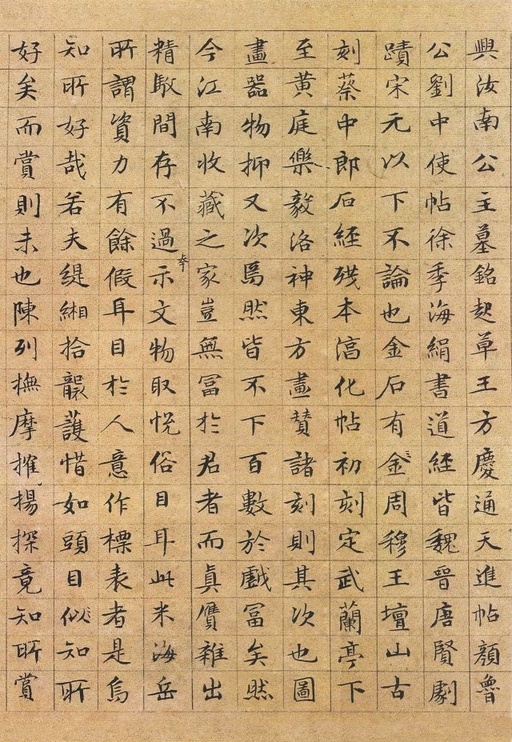 興汝南公主墓銘起草王方慶通天進帖顏魯
公劉中使帖徐季海絹書道經皆魏晉唐賢劇
蹟宋元以下不論也金石有金周穆王壇山古
刻蔡中郎石經殘本淳化帖初刻定武蘭亭下
至黃庭樂毅洛神東方畫贊諸刻則其次也圖
畫器物抑又次焉然皆不下百數於戲富矣然
今江南收藏之家豈無富於君者而眞贗雜出
精駁間存不過夸示文物取悅俗目耳此米海岳
所謂資力有餘假耳目於人意作標表者是烏
知所好哉若夫緹緗拾襲護惜如頭目似知所
好矣而賞則未也陳列橅摩搉揚探竟知所賞